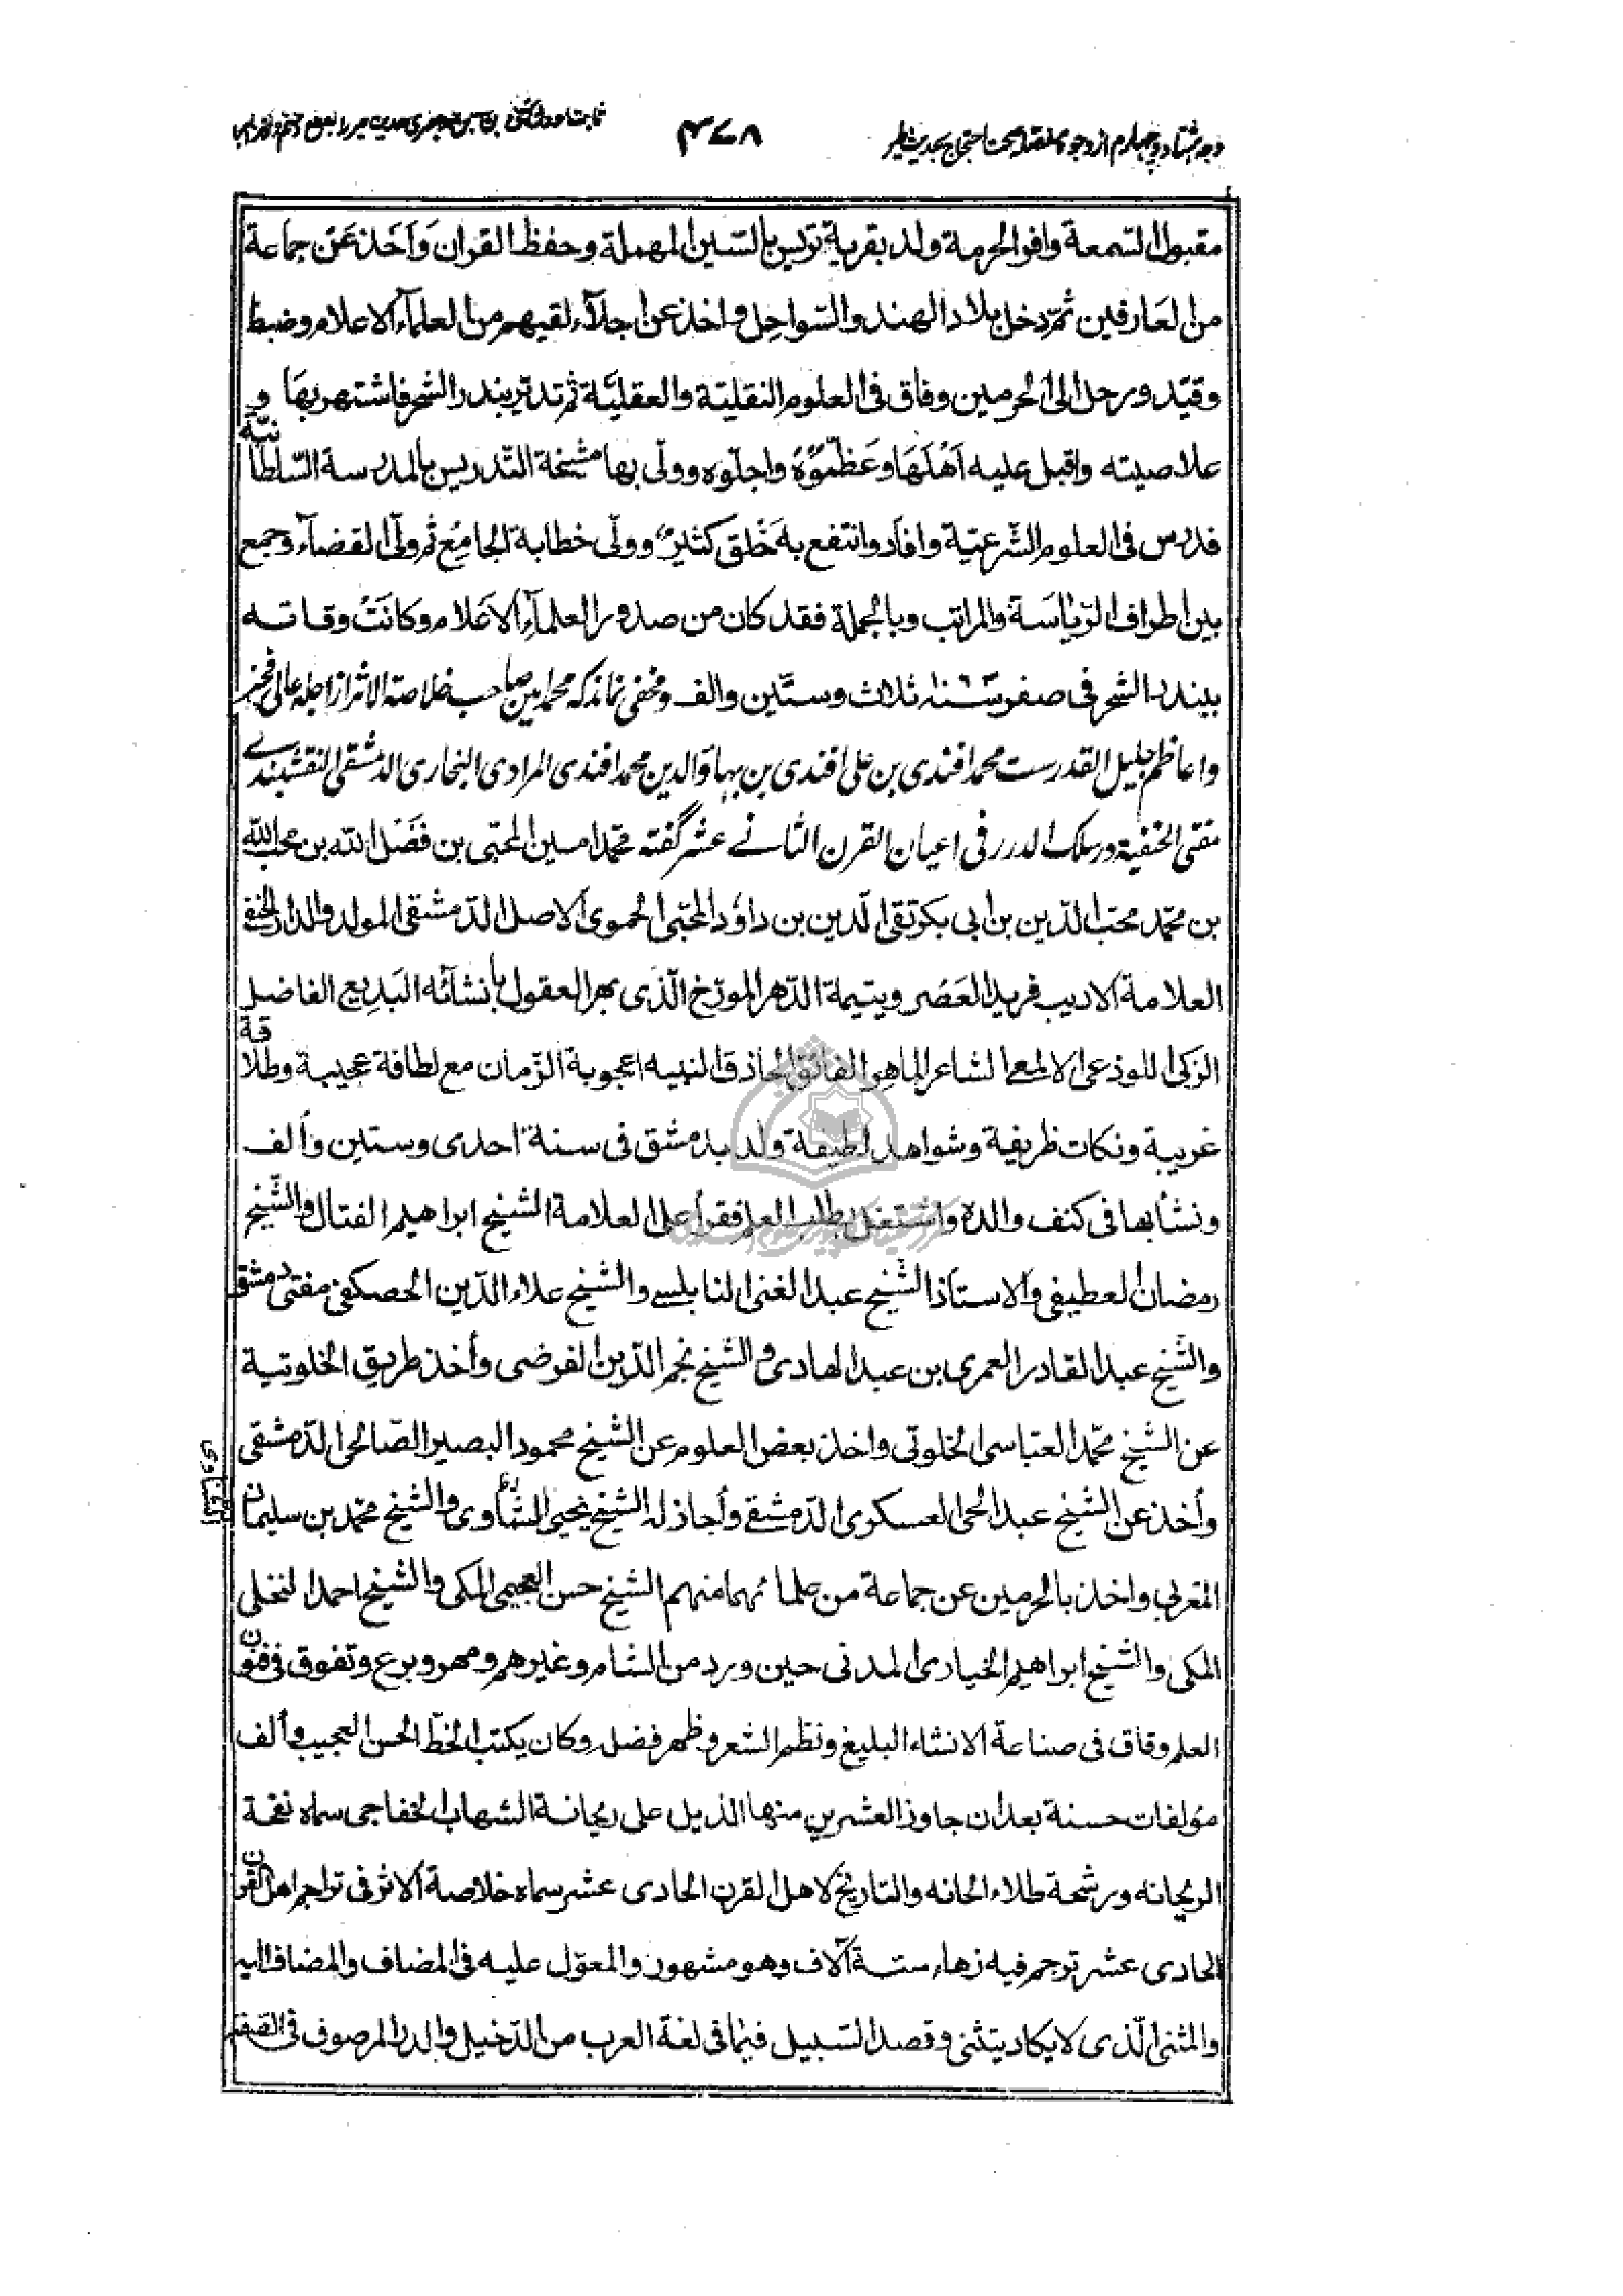 وجه هشتاد و چهارم از وجوه صحت احتجاج بحدیث طیر
۴۷۸
مقبول السمعة وافر الحرمة ولد بقرية تريس بالسّين المهملة وحفظ القران وَاَخَذ عَن جماعة
من العَارفين ثمّ دخل بلاد الهند والسّواحل واخذ عن اجلّاء لقيهم من العلمآء الاعلام وضبط
وقيّد ورحل الى الحرمين وفاق فى العلوم النقليّة والعقليَّة ثم تديّر بندر الشحر فاشتهر بهَا و
علا صيته واقبل عليه اَهْلهَا وعَظّمُوْهُ واجلّوه وولّى بها مشيخة التّدريس بالمدرسة السّلطانيّة
فدرس فى العلوم الشّرعيّة وافاد وانتفع به خَلق كثيرٌ وولّى خطابة الجامِع ثم ولّى القضآء وجمع
بين اطراف الرّياسَة والمراتب وبالجملة فقد كان من صدور العلمآءِ الاَعلام وكانَتْ وفاته
ببندر الشحر فى صفر سَنة ۱۰۶۳ ثلاث وستّين والف ومخفی نماند که محمد امین صاحب خلاصة الاثر از اجلهٔ عالی فخر
واعاظم جلیل القدرست محمد افندی بن علی افندی بن بهاء الدین محمد افندی المرادی البخاری الدمشقی النقشبندے
مفتی الحنفیة در سلک الدرر فی اعیان القرن الثانے عشر گفته محمّد امين المحبّى بن فَضْل الله بن محب الله
بن محمّد محبّ الدّين بن ابى بكر تقى الدين بن داؤد المحبّى الحموى الاصل الدّمشقى المولد والدار الحنفى
العلامة الاديب فريد العَصْر ويتيمة الدّهر المورّخ الّذى بهر العقول بأنشآئه البَديع الفاضل
الزكى اللوذعى الالمعى الشاعر الماهر الفائق الحاذق النبيه اعجوبة الزّمان مع لطافة عجيبة وطلاقة
غريبة ونكات ظريفة وشواهد لطيفة ولد بدمشق فى سنة احدى وستين وألف
ونشأ بها فى كنف والده واشتغل بطلب العلم فقرأ على العلامة الشيخ ابراهيم الفتال والشّيخ
رمضان العطيفى والاستاذ الشّيخ عبد الغنى النابلسے والشيخ علاء الدّين الحصكفى مفتى دمشق
والشّيخ عبد القادر العمرى بن عبد الهادى والشّيخ نجم الدّين الفرضى وأخذ طريق الخلوتية
عن الشيخ محمّد العبّاسى الخلوتى واخذ بعض العلوم عن الشيخ محمود البصير الصّالحى الدّمشقى
وأخذ عن الشّيخ عبد الحى العسكرى الدّمشقے وأجاز له الشّيخ يحيى الشّاوى والشيخ محمّد بن سليمان
الشاوى
المغربى واخذ بالحرمين عن جماعة من علمائهما منهم الشيخ حسن العجيمى المكى والشيخ احمد النخلى
المكى والشيخ ابراهيم الخيارى المدنى حين ورد من الشام وغيرهم ومهر وبرع وتفوق فى فنون
العلم وفاق فى صناعة الانشاء البليغ ونظم الشعر وظهر فضله وكان يكتب الخطّ الحسن العجيب وألف
مؤلفات حسنة بعد أن جاوز العشرين منها الذيل على ريحانة الشهاب الخفاجى سماه نفحة
الريحانه ورشحة طلاء الحانه والتاريخ لاهل القرن الحادى عشر سماه خلاصة الاثر فى تراجم اهل القرن
الحادى عشر ترجم فيه زهاء ستة آلاف وهو مشهور والمعوّل عليه فى المضاف والمضاف اليه
والمثنى الّذى لا يكاد يتثنى وقصد السّبيل فيما فى لغة العرب من الدّخيل والدر المرصوف فى الصفة